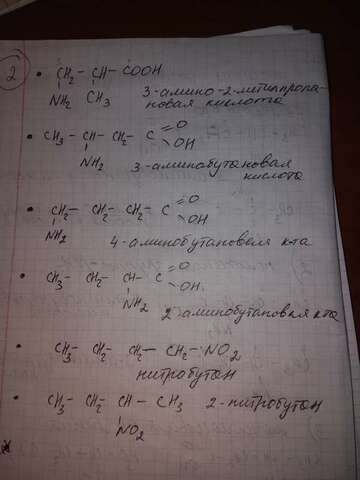 2
• CH2 - CH - COOH
NH2 CH3
3-амино-2-метилпропа-
новая кислота
• CH3 - CH - CH2 - C =O
- OH
NH2
3-аминобутановая
кислота
• CH2 - CH2 - CH2 - C =O
- OH
NH2
4-аминобутановая к-та
• CH3 - CH2 - CH - C =O
- OH
NH2
2-аминобутановая к-та
• CH3 - CH2 - CH2 - CH2 - NO2
нитробутан
• CH3 - CH2 - CH - CH3 2-нитробутан
NO2